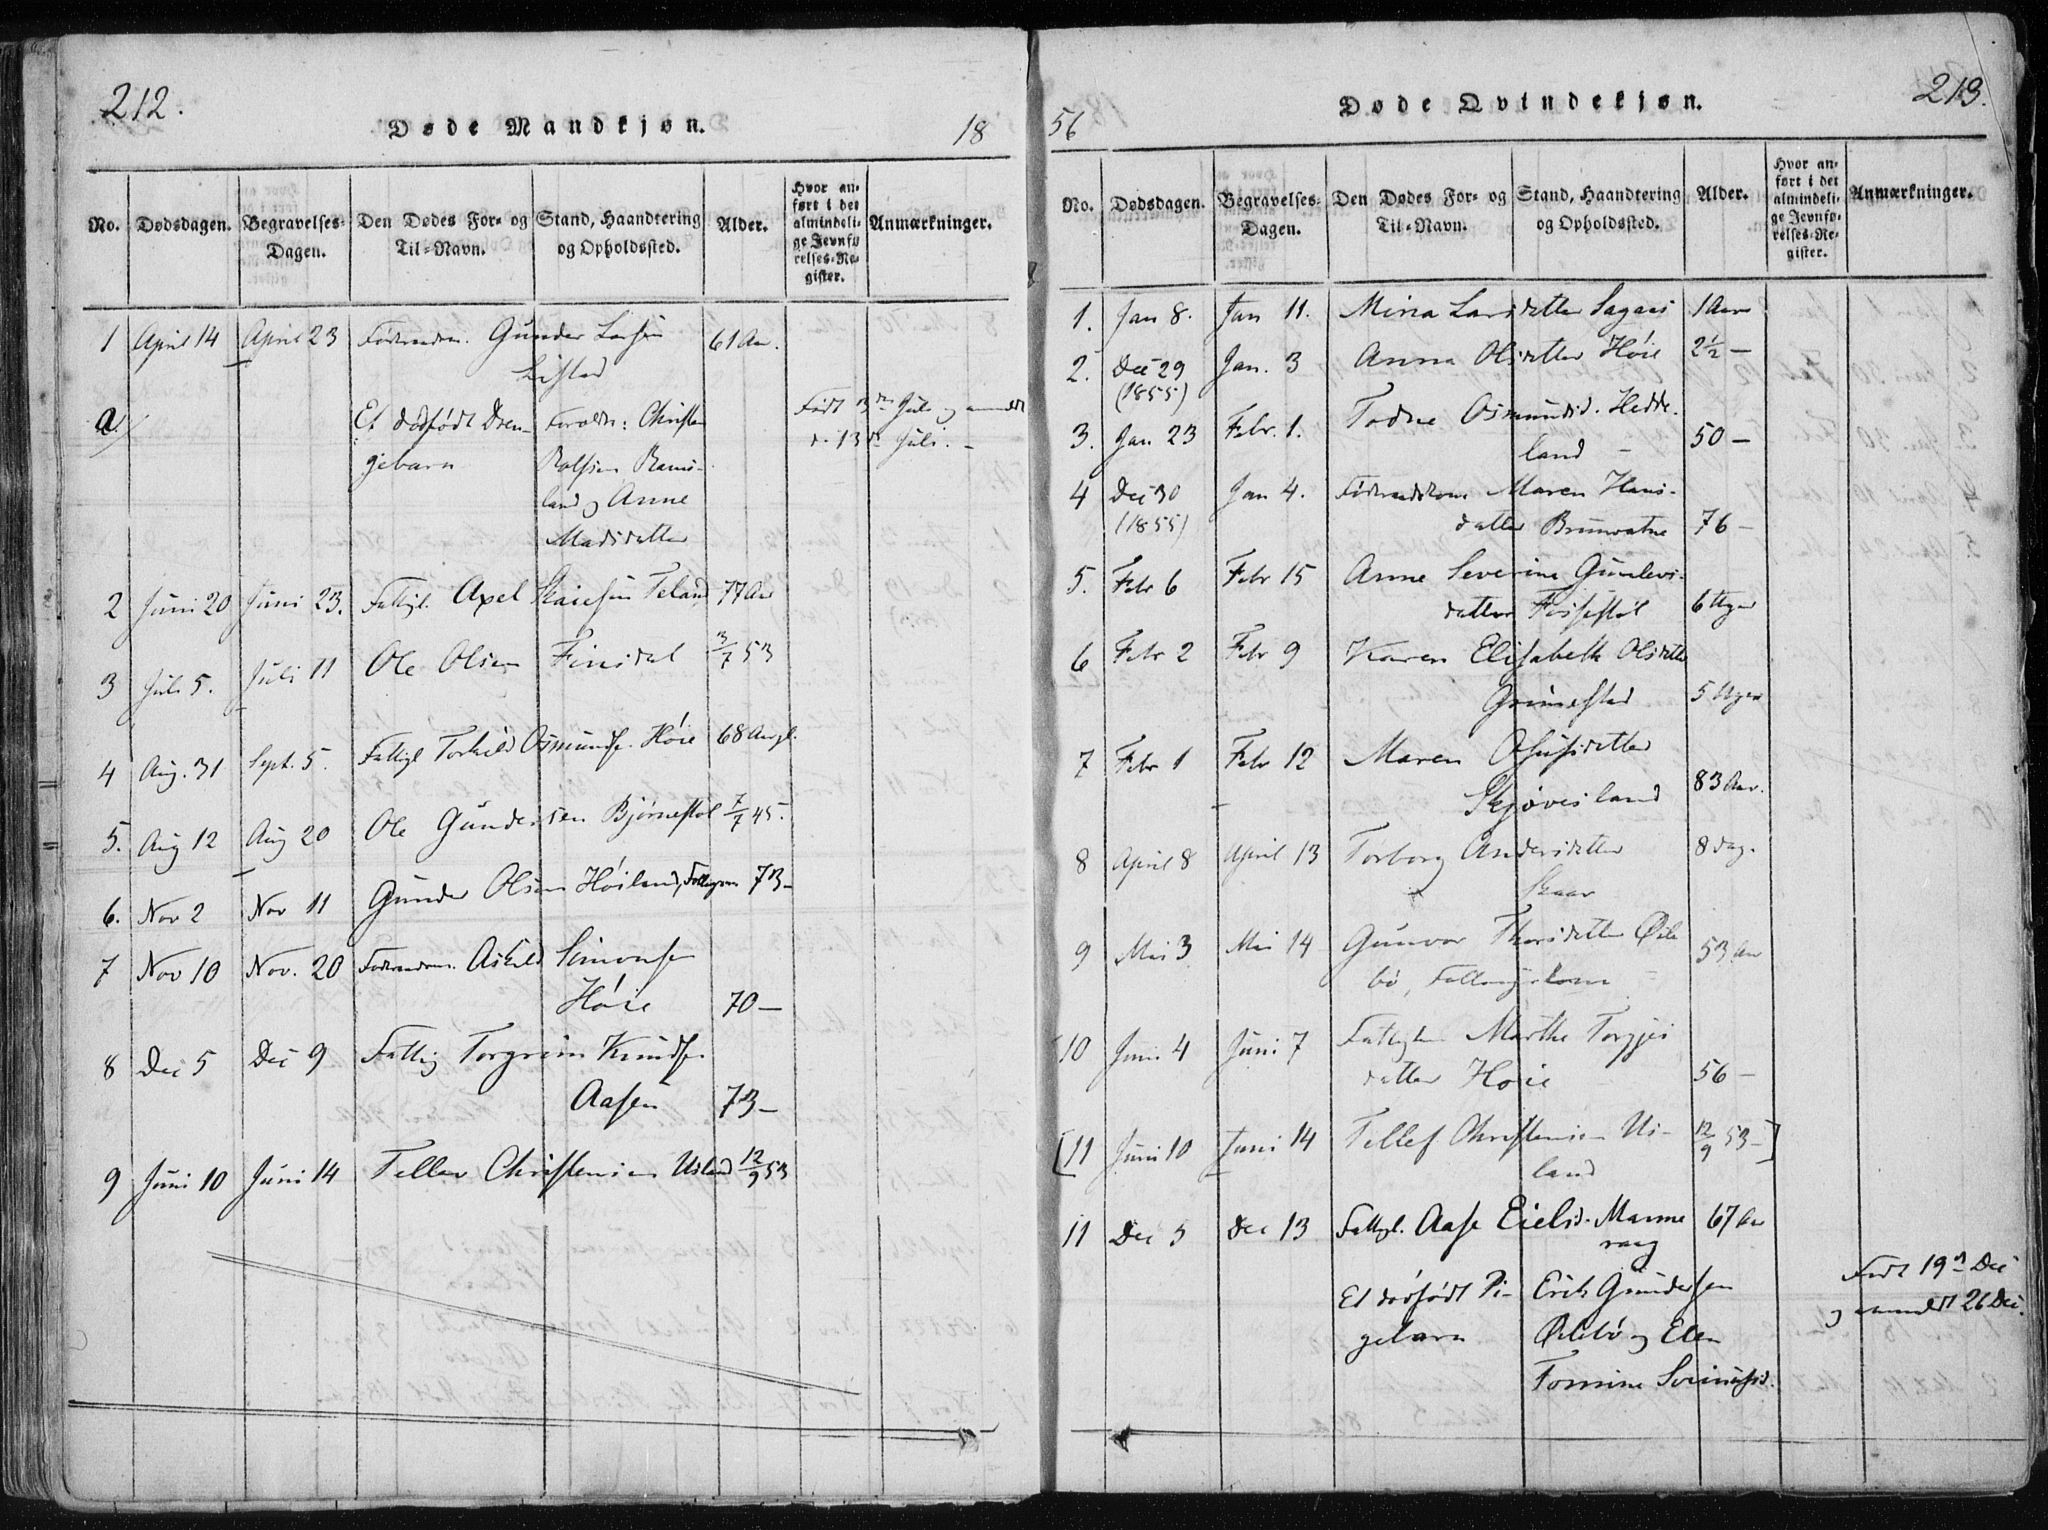 212.
Døde Mandkjøn.
18
No. Dødsdagen. Begravelses-Dagen. Den Dødes For- og Til-Navn. Stand, Haandtering og Opholdssted. Alder. Hvor anført i det almindelige Jevnførelses-Register. Anmærkninger.
1 April 14 April 23 Gunder 61 Aar.
a/ Et dødfødt Dren- Foraldre: Christen Født 3 Juli og anmeldt
gebarn d. 13 d Juli. -
land og Anne
Madsdatter
2 Juni 20 Juni 23. Fattigl. Axel 77 Aar
3 Juli 5. Juli 11 Ole Olsen Finsdal 3/7 53
4 Aug. 31 Sept. 5. Fattigl Torkild Osmundsen Høie 68 Aar
5. Aug 12 Aug 20 Ole Gundersen Bjørnestøl 7/7 45.
6. Nov 2 Nov 11 Gunder Olsen Høiland, 73-
7 Nov 10 Nov. 20 Askild Simonsen
Høie 70-
8 Dec 5 Dec 9 Fattig Torgrim Knudsen
Aasen 73-
9 Juni 10 Juni 14 Tellev Christensen Usland 12/9 53
56
Døde Qvindekjøn.
213.
No. Dødsdagen. Begravelses-Dagen. Den Dødes For- og Til-Navn. Stand, Haandtering og Opholdssted. Alder. Hvor anført i det almindelige Jevnførelses-Register. Anmærkninger.
1. Jan 8. Jan 11. Mina Larsdatter 1 Aar
2. Dec 29 Jan. 3 Anna Olsdatter Høie 2 1/2 -
(1855)
3. Jan 23 Febr. 1. Todne Osmundsd. Hedde-
land - 50-
4 Dec 30 Jan 4. Maren Hans-
(1855) datter Brunvatne 76-
5. Febr 6 Febr 15 Anne Severine Gunlevs-
datter Fossestøl 6 Uger
6 Febr 2 Febr 9 Karen Elisabeth Olsdatter
Grimestad 5 Uger
7 Febr 1 Febr 12 Maren
Skjøvesland 83 Aar.
8 April 8 April 13 Torborg Andersdatter 8 Dag.
Skaar
9 Mai 3 Mai 14 Gunvor Thorsdatter Øile
bø, 53 Aar
10 Juni 4 Juni 7 Marthe Torgjus
datter Høie 56-
[11 Juni 10 Juni 14 Tellef Christensen Us- 12/9 53-]
land
11 Dec 5 Dec 13 Fattigl. Aase Eielsd. 67 Aar
Et dødfødt Pi- Erik Gundersen Født 19 Dec
gebarn Øilebø og Elen og anmeldt 26 Dec.
Tomine